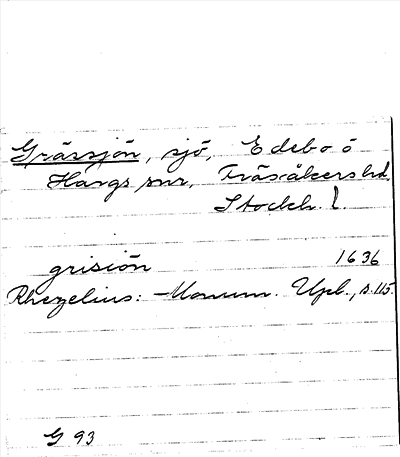 Grässjön, sjö, Edebo o
Hargs snr, Fräsåkers hd,
Stockh. l.
grisiön 1636
Rhezelius: Monum. Upl., s. 115.
G 93